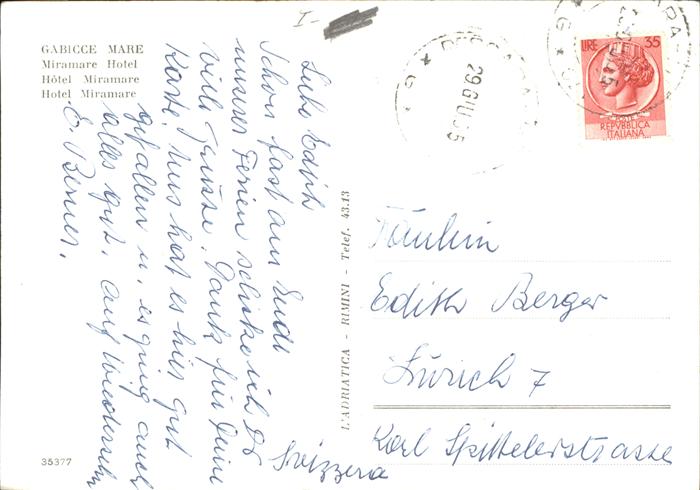 I-
GABICCE MARE
Miramare Hotel
Hôtel Miramare
Hotel Miramare
Liebe Edith
Schon fast am Ende
unserer Ferien schicke ich Dir
viele Grüsse. Dank für Deine
Karte. Uns hat es hier gut
gefallen u. es ging auch
alles gut. Auf Wiedersehn
E. Benner.
L'ADRIATICA - RIMINI - Telef. 43.13
29 GIU
LIRE 35
REPVBBLICA
ITALIANA
Fräulein
Edith Berger
Zürich 7
Karl Spittelerstrasse
Svizzera
35377